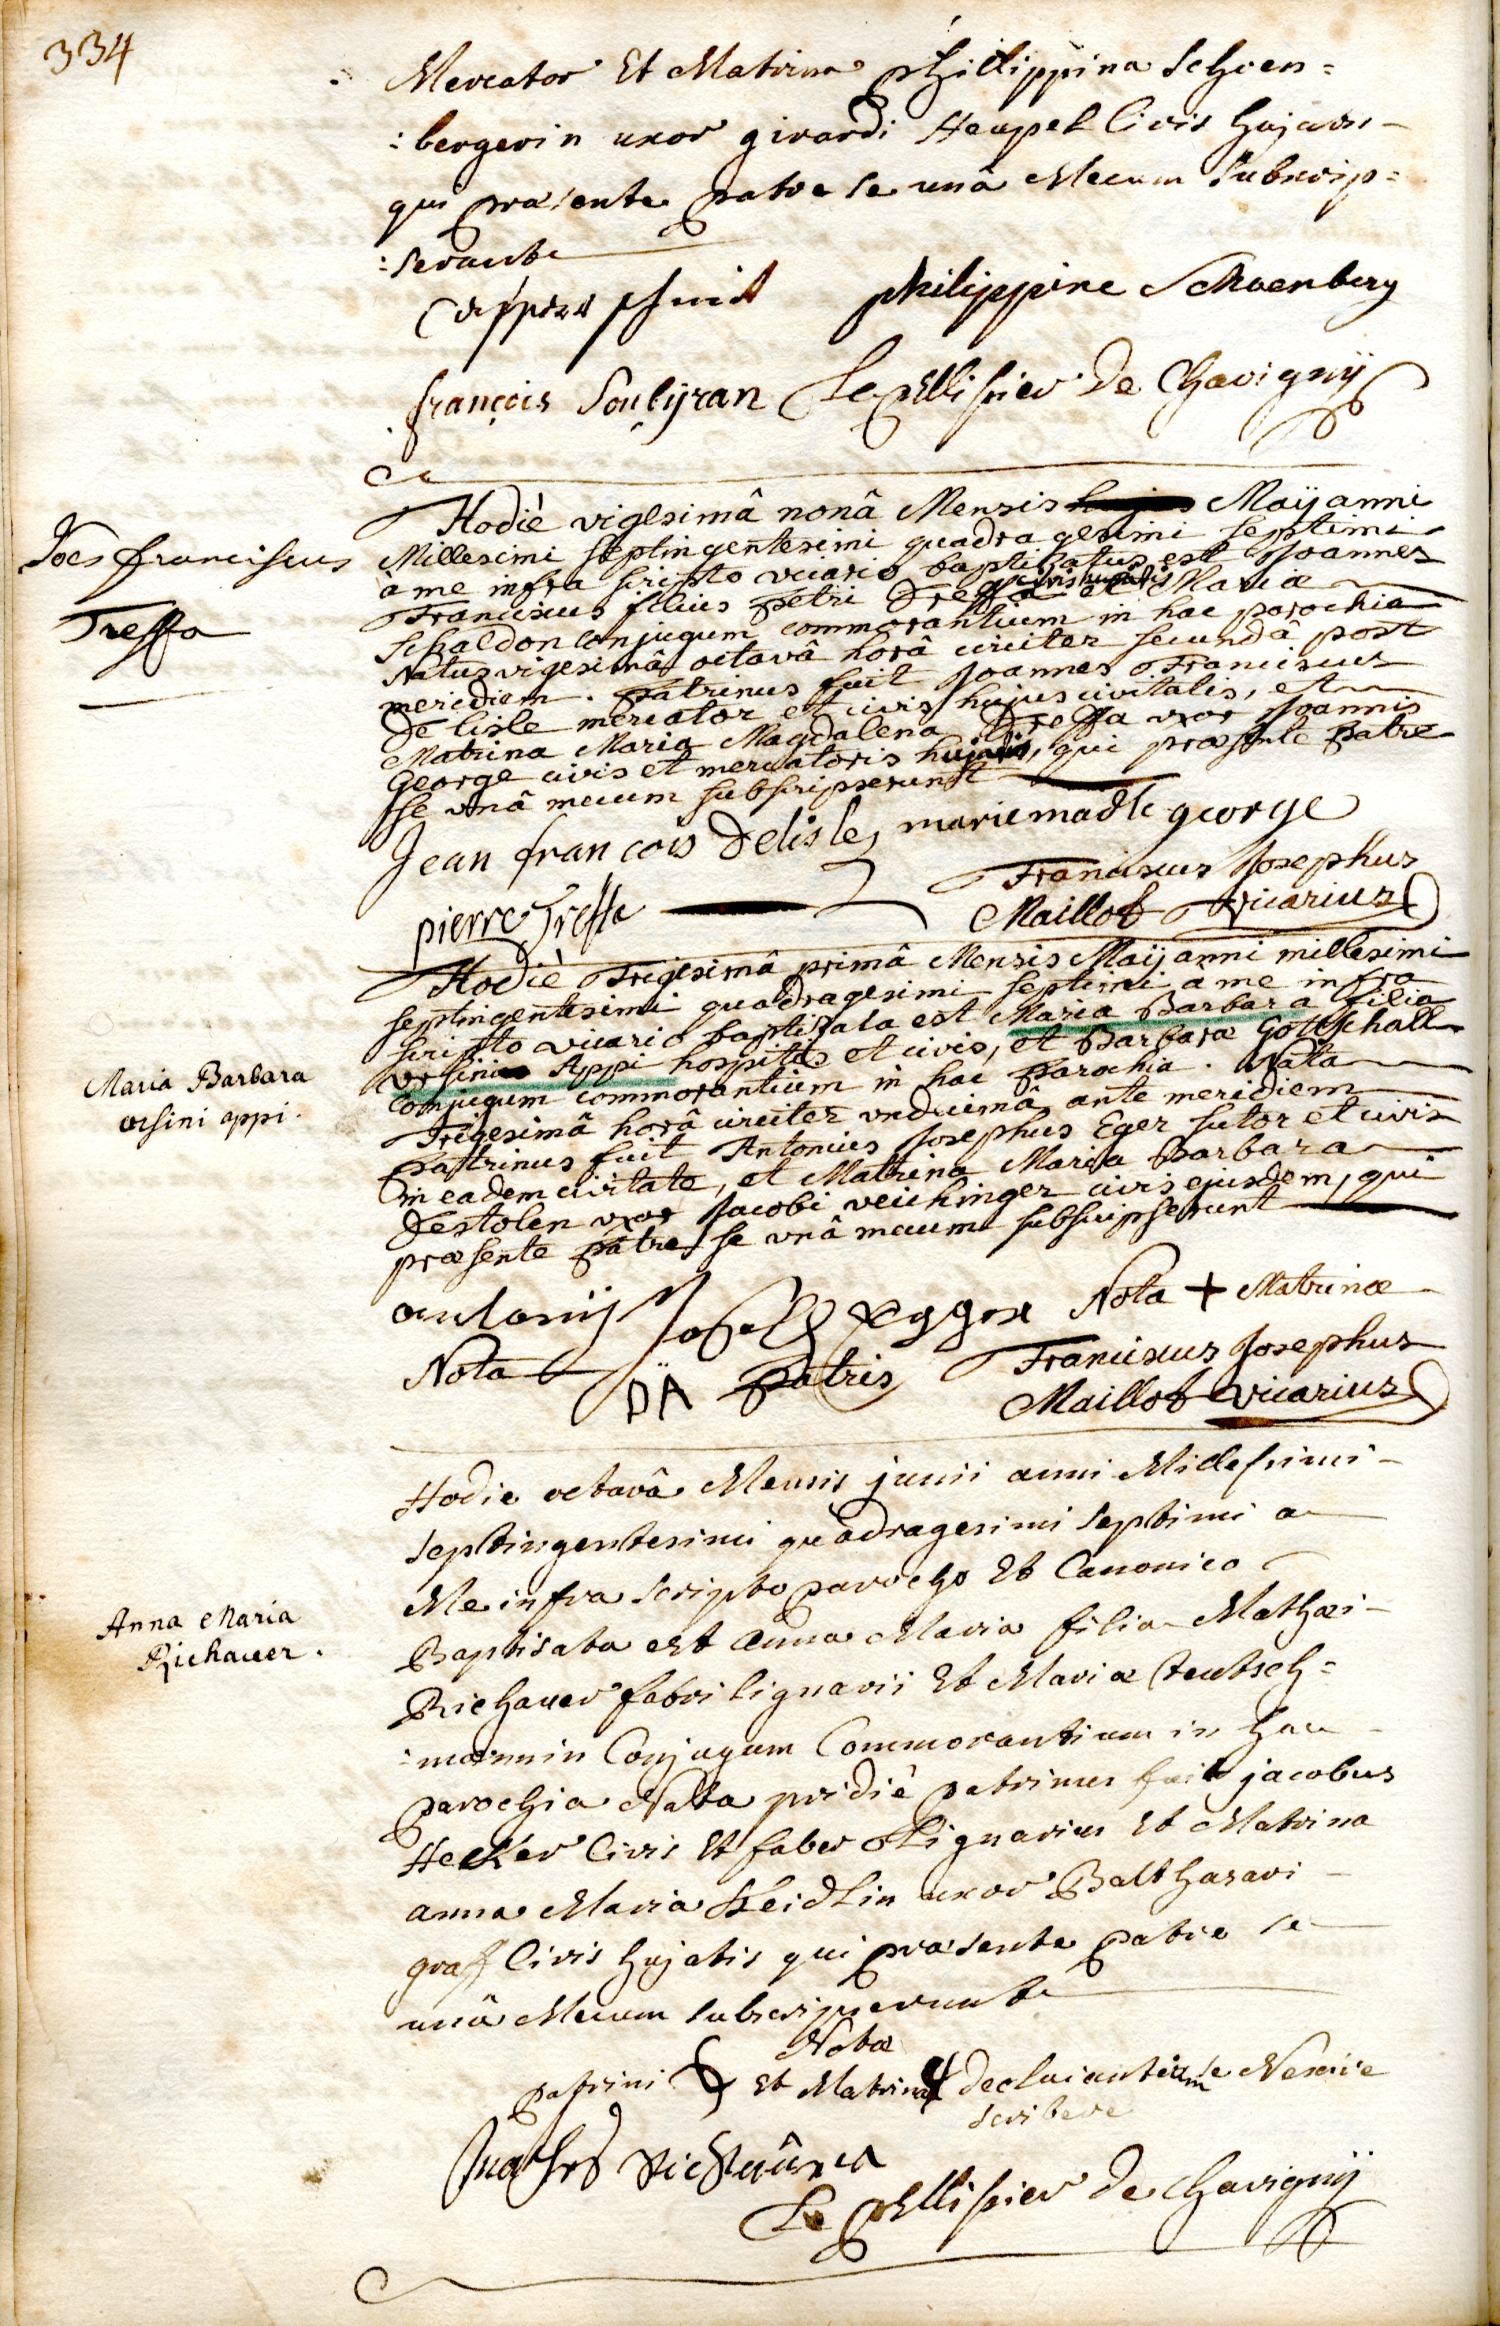 334
Mercator Et Matrina phillippina Schoen=
:bergerin uxor girardi Heupel Civis hujatis
qui præsente patre se unâ Mecum Subscrip=
:serunt
philippine Schoenberg
françois Soulijran Le pellissier De Chavignÿ
Joes franciscus
Treffa
Hodiè vigesimâ nonâ Mensis Maÿ anni
Millesimi septingentesimi quadragesimi septimi
à me infra scripto vicario baptisatus est Joannes
Franciscus filius Petri Treffa civis hujatis et Mariæ
Schaldon conjugum commorantium in hac parochia
Natus vigesimâ octavâ horâ circiter secundâ post
meridiem. Patrinus fuit Joannes Franciscus
De lisle mercator et civis hujus civitatis, et
Matrina Maria Magdalena Treffa uxor Joannis
George civis et mercatoris hujatis, qui præsente Patre
se unâ mecum subscripserunt
Jean françois Delisle, marie madle george
pierre Treffa
Franciscus Josephus
Maillot vicarius
Maria Barbara
ursini appi.
Hodiè Trigesimâ primâ Mensis Maÿ anni millesimi
septingentesimi quadragesimi septimi à me infra
scripto vicario baptisata est Maria Barbara filia
Ursini Appi hospitis et civis, et Barbaræ Gottschall
conjugum commorantium in hac Parochia. Nata
Trigesimâ horâ circiter undecimâ ante meridiem
Patrinus fuit Antonius Josephus Eger sutor et civis
in eadem civitate, et Matrina Maria Barbara
Destolen uxor Jacobi veichinger civis ejusdem, qui
præsente Patre se unâ mecum subscripserunt
antoniÿ Joseph Egger Nota + Matrinæ
Nota DA Patris
Franciscus Josephus
Maillot vicarius
Anna Maria
Richauer.
Hodie octavâ Mensis junii anni Millesimi
septingentesimi quadragesimi septimi a
Me infra scripto parocho Et Canonico
Baptisata est Anna Maria filia Mathæi
Richauer fabri lignarii Et Mariæ teutsch=
:mannin Conjugum Commorantium in hac
parochia Nata pridiè patrinus fuit jacobus
Hecker Civis Et faber Lignarius Et Matrina
anna Maria Keidlin uxor Balthasari
graff Civis hujatis qui præsente patre se
unâ Mecum subscripserunt
Nota
patrini Et Matrinæ declarantium se Nescire
scribere
Le pellissier de Chavignÿ